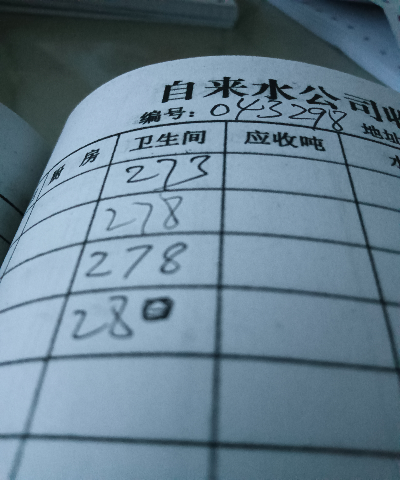 自来水公司收
编号: 043298 地址
厨房 卫生间 应收吨 水
273
278
278
28